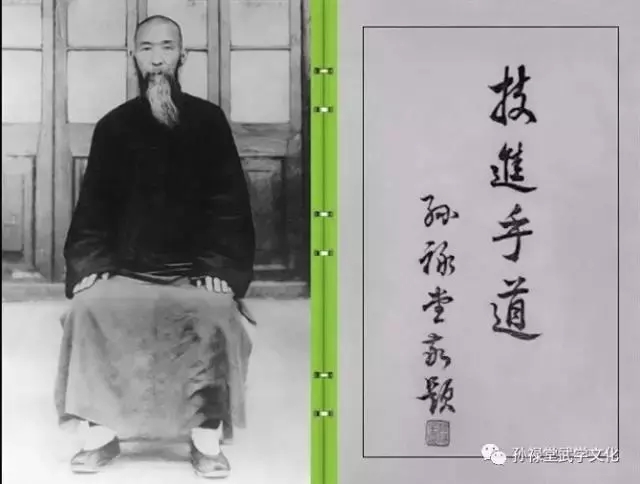 技進乎道
孫祿堂敬題
孙禄堂武学文化